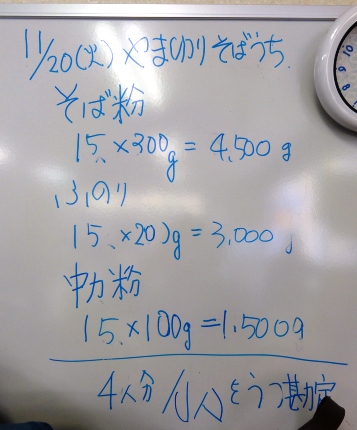 11/20(火) やまゆりそばうち
そば粉
15.×300g=4,500g
ふのり
15.×200g=3,000g
中力粉
15.×100g=1,500g
4人分/1人をうつ勘定